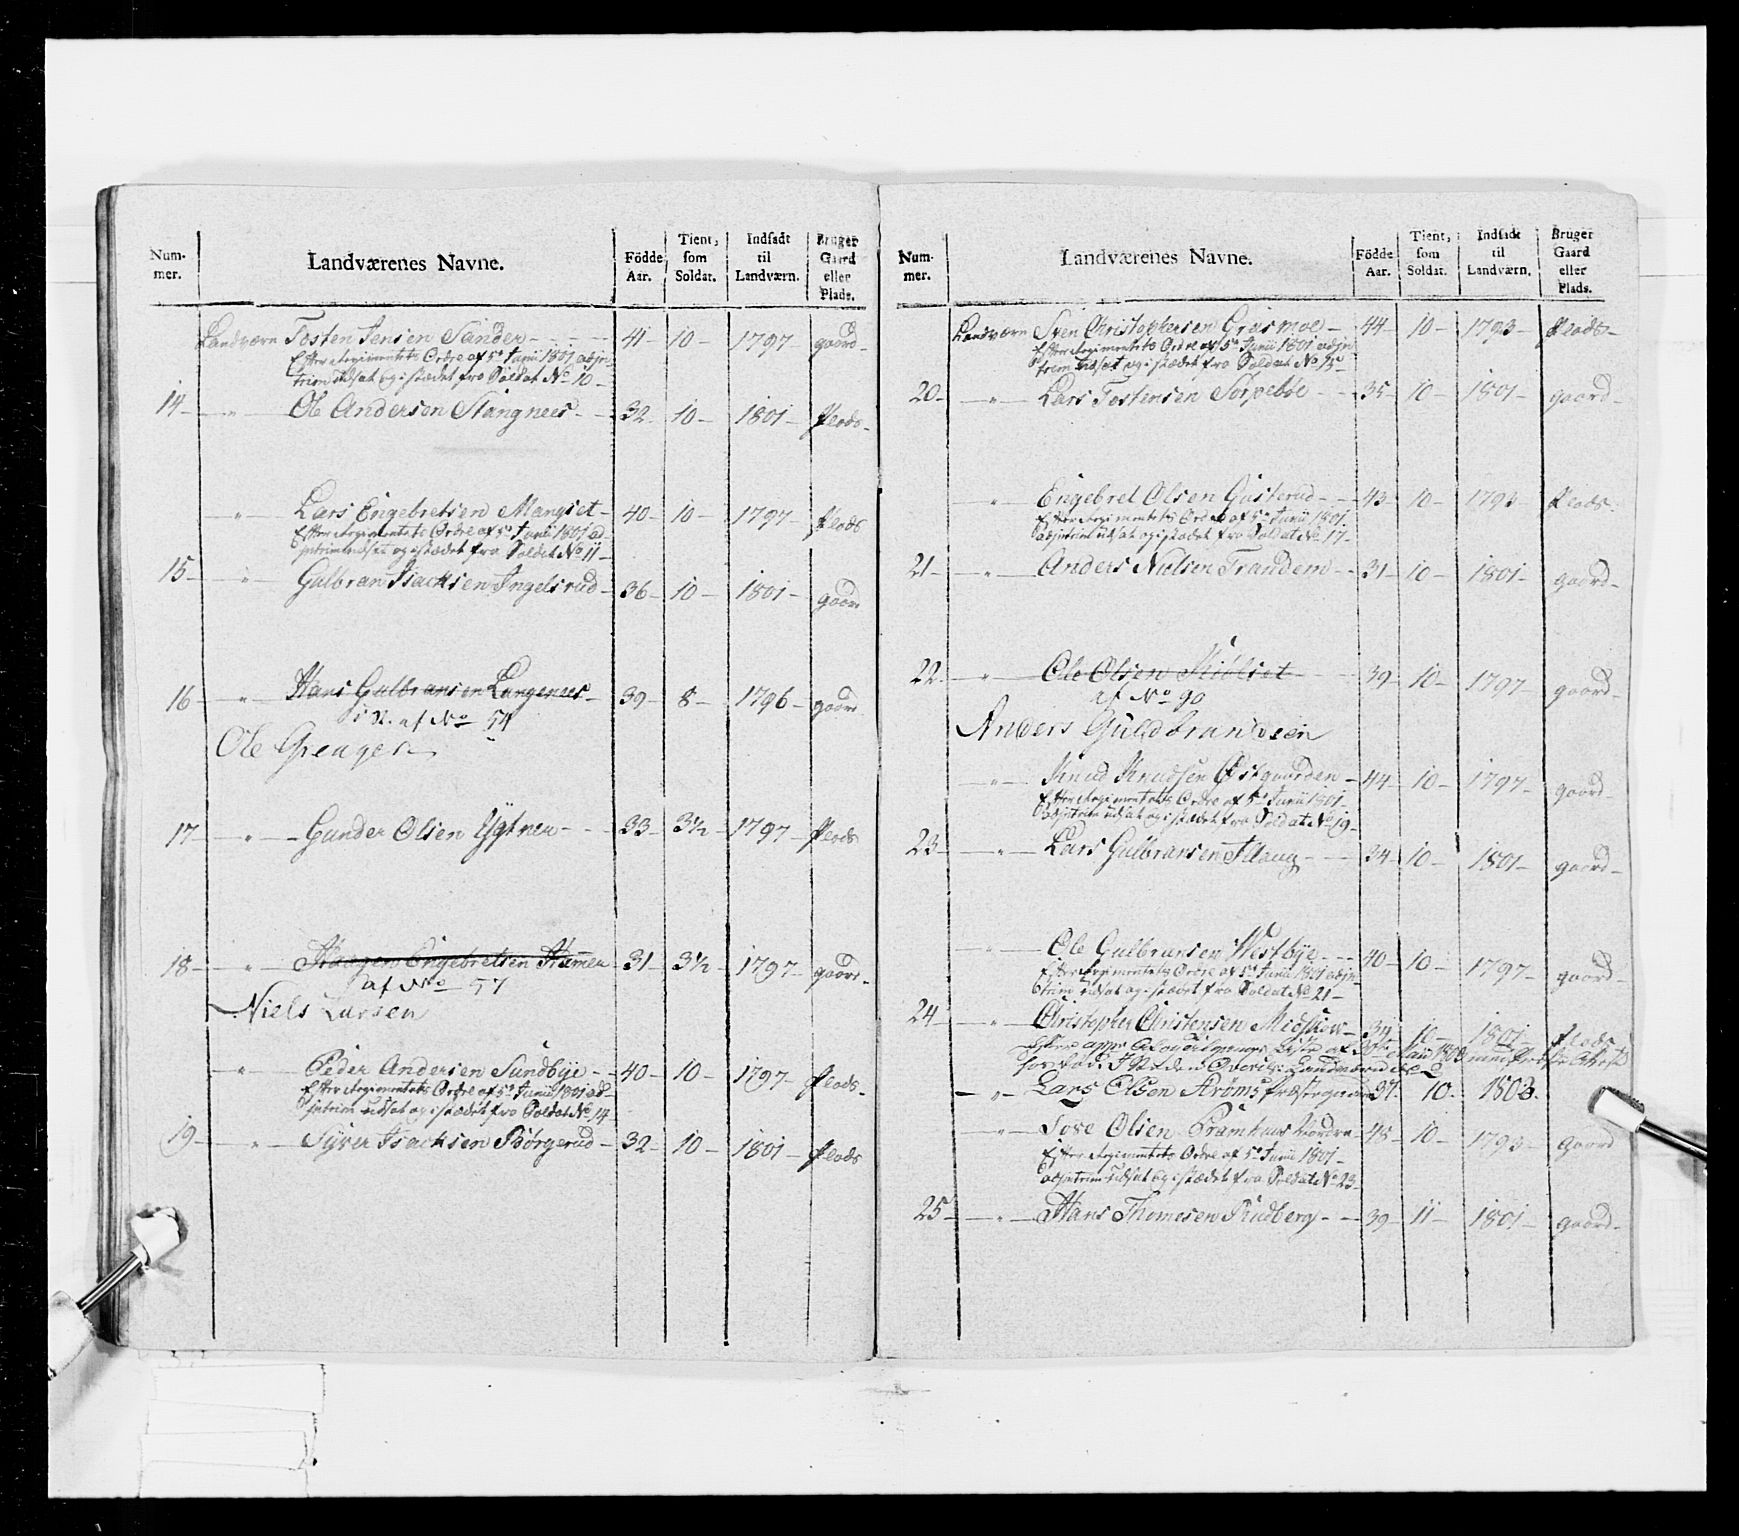 Num-
mer.
Landværenes Navne.
Födde
Aar.
Tient,
som
Soldat.
Indsadt
til
Landværn.
Bruger
Gaard
eller
Plads.
Landværn Tosten Jensen Sander - 41 - 10 - 1797 - gaard -
Efter Regimentets Ordre af 5te Junii 1801 adjn-
trim udsat og i stædet fra Soldat No 10 -
14 - " - Ole Andersen Stangnees - 32 - 10 - 1801 - Plads -
- " - Lars Engebretsen Mangset - 40 - 10 - 1797 - Plads
Efter Regimentets Ordre af 5te Junii 1801 ad-
jntrim udsat og i stædet fra Soldat No 11 -
15 - " - Gulbran Isachsen Ingelsrud - 36 - 10 - 1801 - gaard
16 - " - Hans Gulbransen Langenees - 39 - 8 - 1796 - gaard
af No 54
Ole
17 - " - Gunder Olsen - 33 - 3½ - 1797 - Plads
18 - " - Haagen Engebretsen - 31 - 3½ - 1797 - gaard -
af No 57
Niels Larsen
- " - Peder Andersen Sundbye - 40 - 10 - 1797 - Plads -
Efter Regimentets Ordre af 5te Junii 1801 ad-
jntrim udsat og i stædet fra Soldat No 14
19 - " - Syver Isachsen Börgerud - 32 - 10 - 1801 - Plads
Num-
mer.
Landværenes Navne.
Födde
Aar.
Tient,
som
Soldat.
Indsadt
til
Landværn.
Bruger
Gaard
eller
Plads.
Landværn Sven Christophersen Grasmoe - 44 - 10 - 1793 - Plads -
Efter Regimentets Ordre af 5te Junii 1801 adjn-
trim udsat og i stædet fra Soldat No 15
20 - " - Lars Tostensen - 35 - 10 - 1801 - gaard -
- " - Engebret Olsen Gusterud - 43 - 10 - 1793 - Plads -
Efter Regimentets Ordre af 5te Junii 1801
adjntrim udsat og i stædet fra Soldat No 17 -
21 - " - Anders Nielsen Trandem - 31 - 10 - 1801 - gaard -
22 - " - Ole Olsen Kiölset - 39 - 10 - 1797 - gaard -
af No 90
Anders Guldbrandsen
- " - Knud Knudsen Östgaarden - 44 - 10 - 1797 - gaard -
Efter Regimentets Ordre af 5te Junii 1801 -
adjntrim udsat og i stædet fra Soldat No 19 -
23 - " - Lars Gulbransen - 34 - 10 - 1801 - gaard -
- " - Ole Gulbransen Westbye - 40 - 10 - 1797 - gaard -
Efter Regimentets Ordre af 5te Junii 1801 adjn-
trim udsat og i stædet fra Soldat No 21 -
24 - " - Christopher Christensen Midskow - 34 - 10 - 1801 - Plads
- " - Lars Olsen Aröms 37. 10. 1803.
- " - Tove Olsen Framhuus Nordre - 48 - 10 - 1793 - Gaard
Efter Regimentets Ordre af 5te Junii 1801 -
adjntrim udsat og i stædet fra Soldat No 23 -
25 - " - Hans Thomesen Rudberg - 39 - 11 - 1801 - gaard -